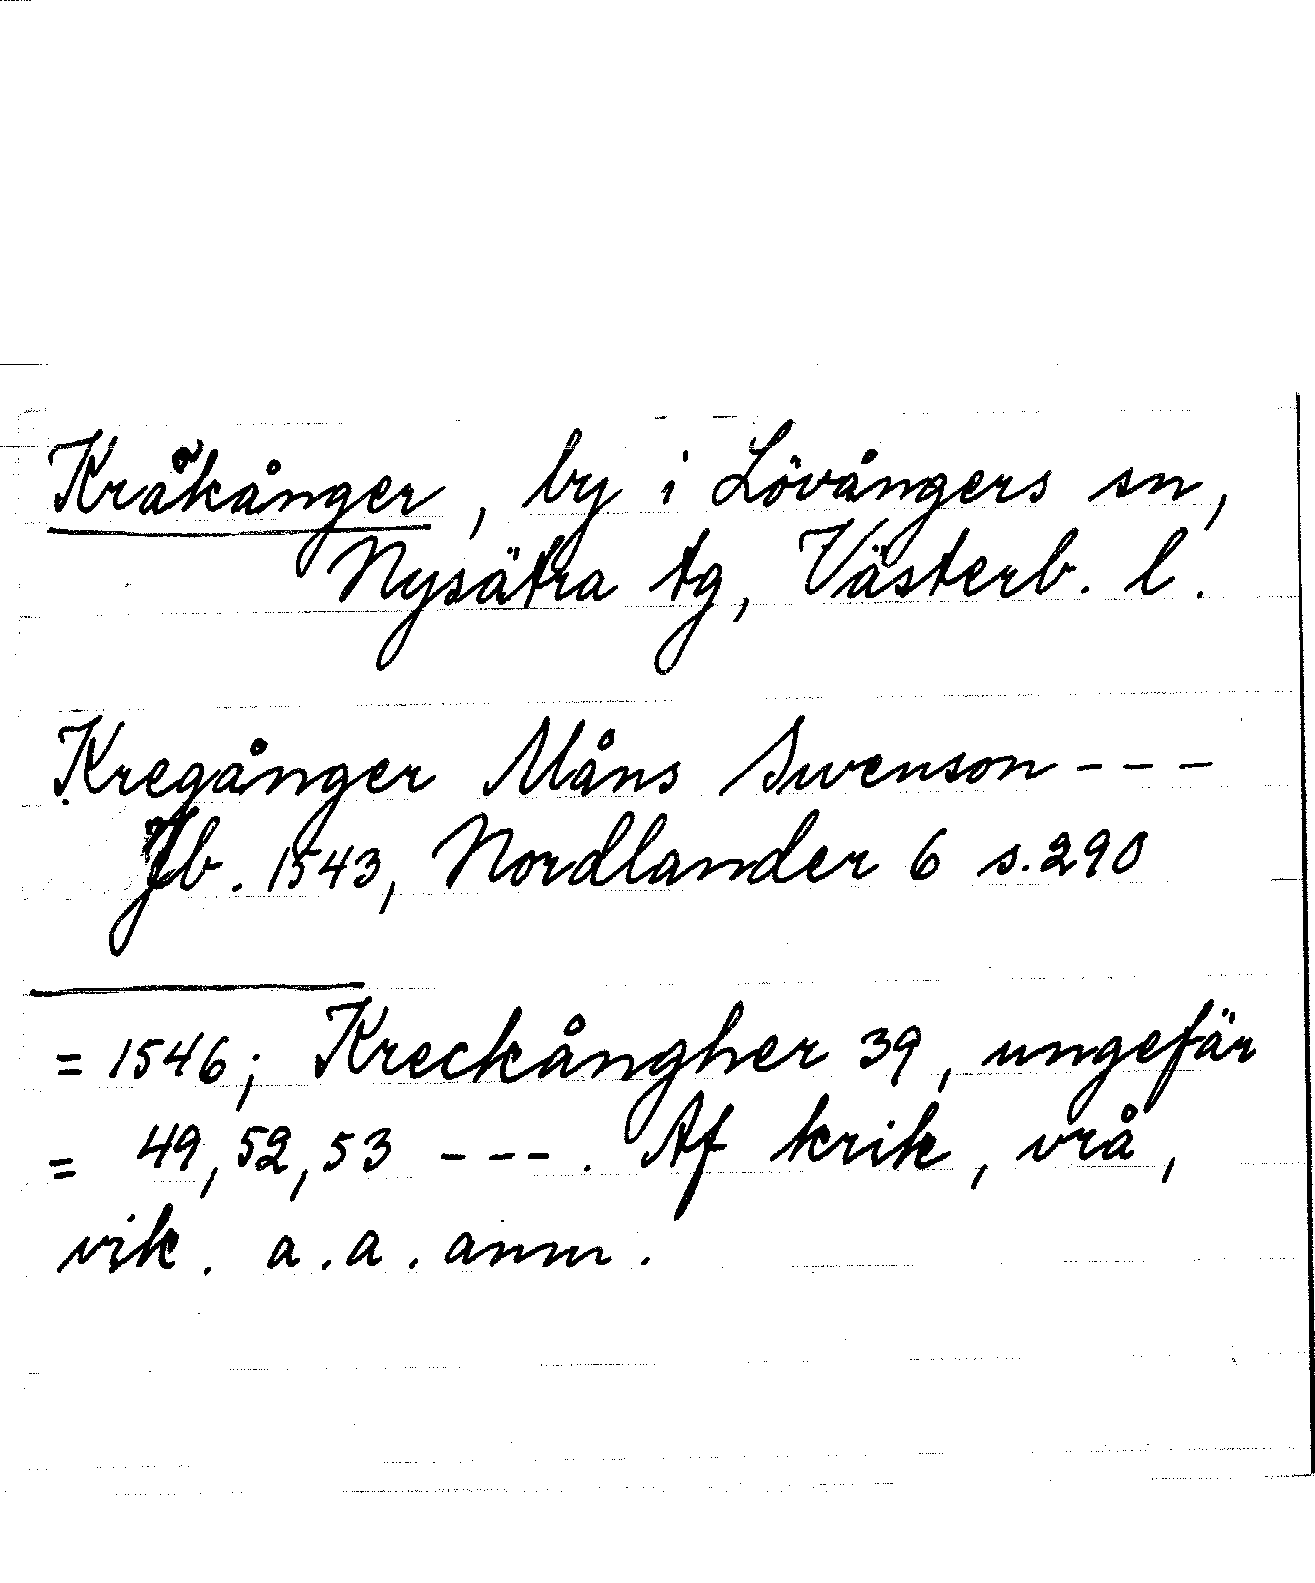 Kråkånger, by i Lövångers sn,
Nysätra tg, Västerb. l.
Kregånger Måns Swenson ---
Jb. 1543, Nordlander 6 s. 290
= 1546; Kreckångher 39, ungefär
= 49, 52, 53 ---. Af krik, vrå,
vik. a. a. anm.